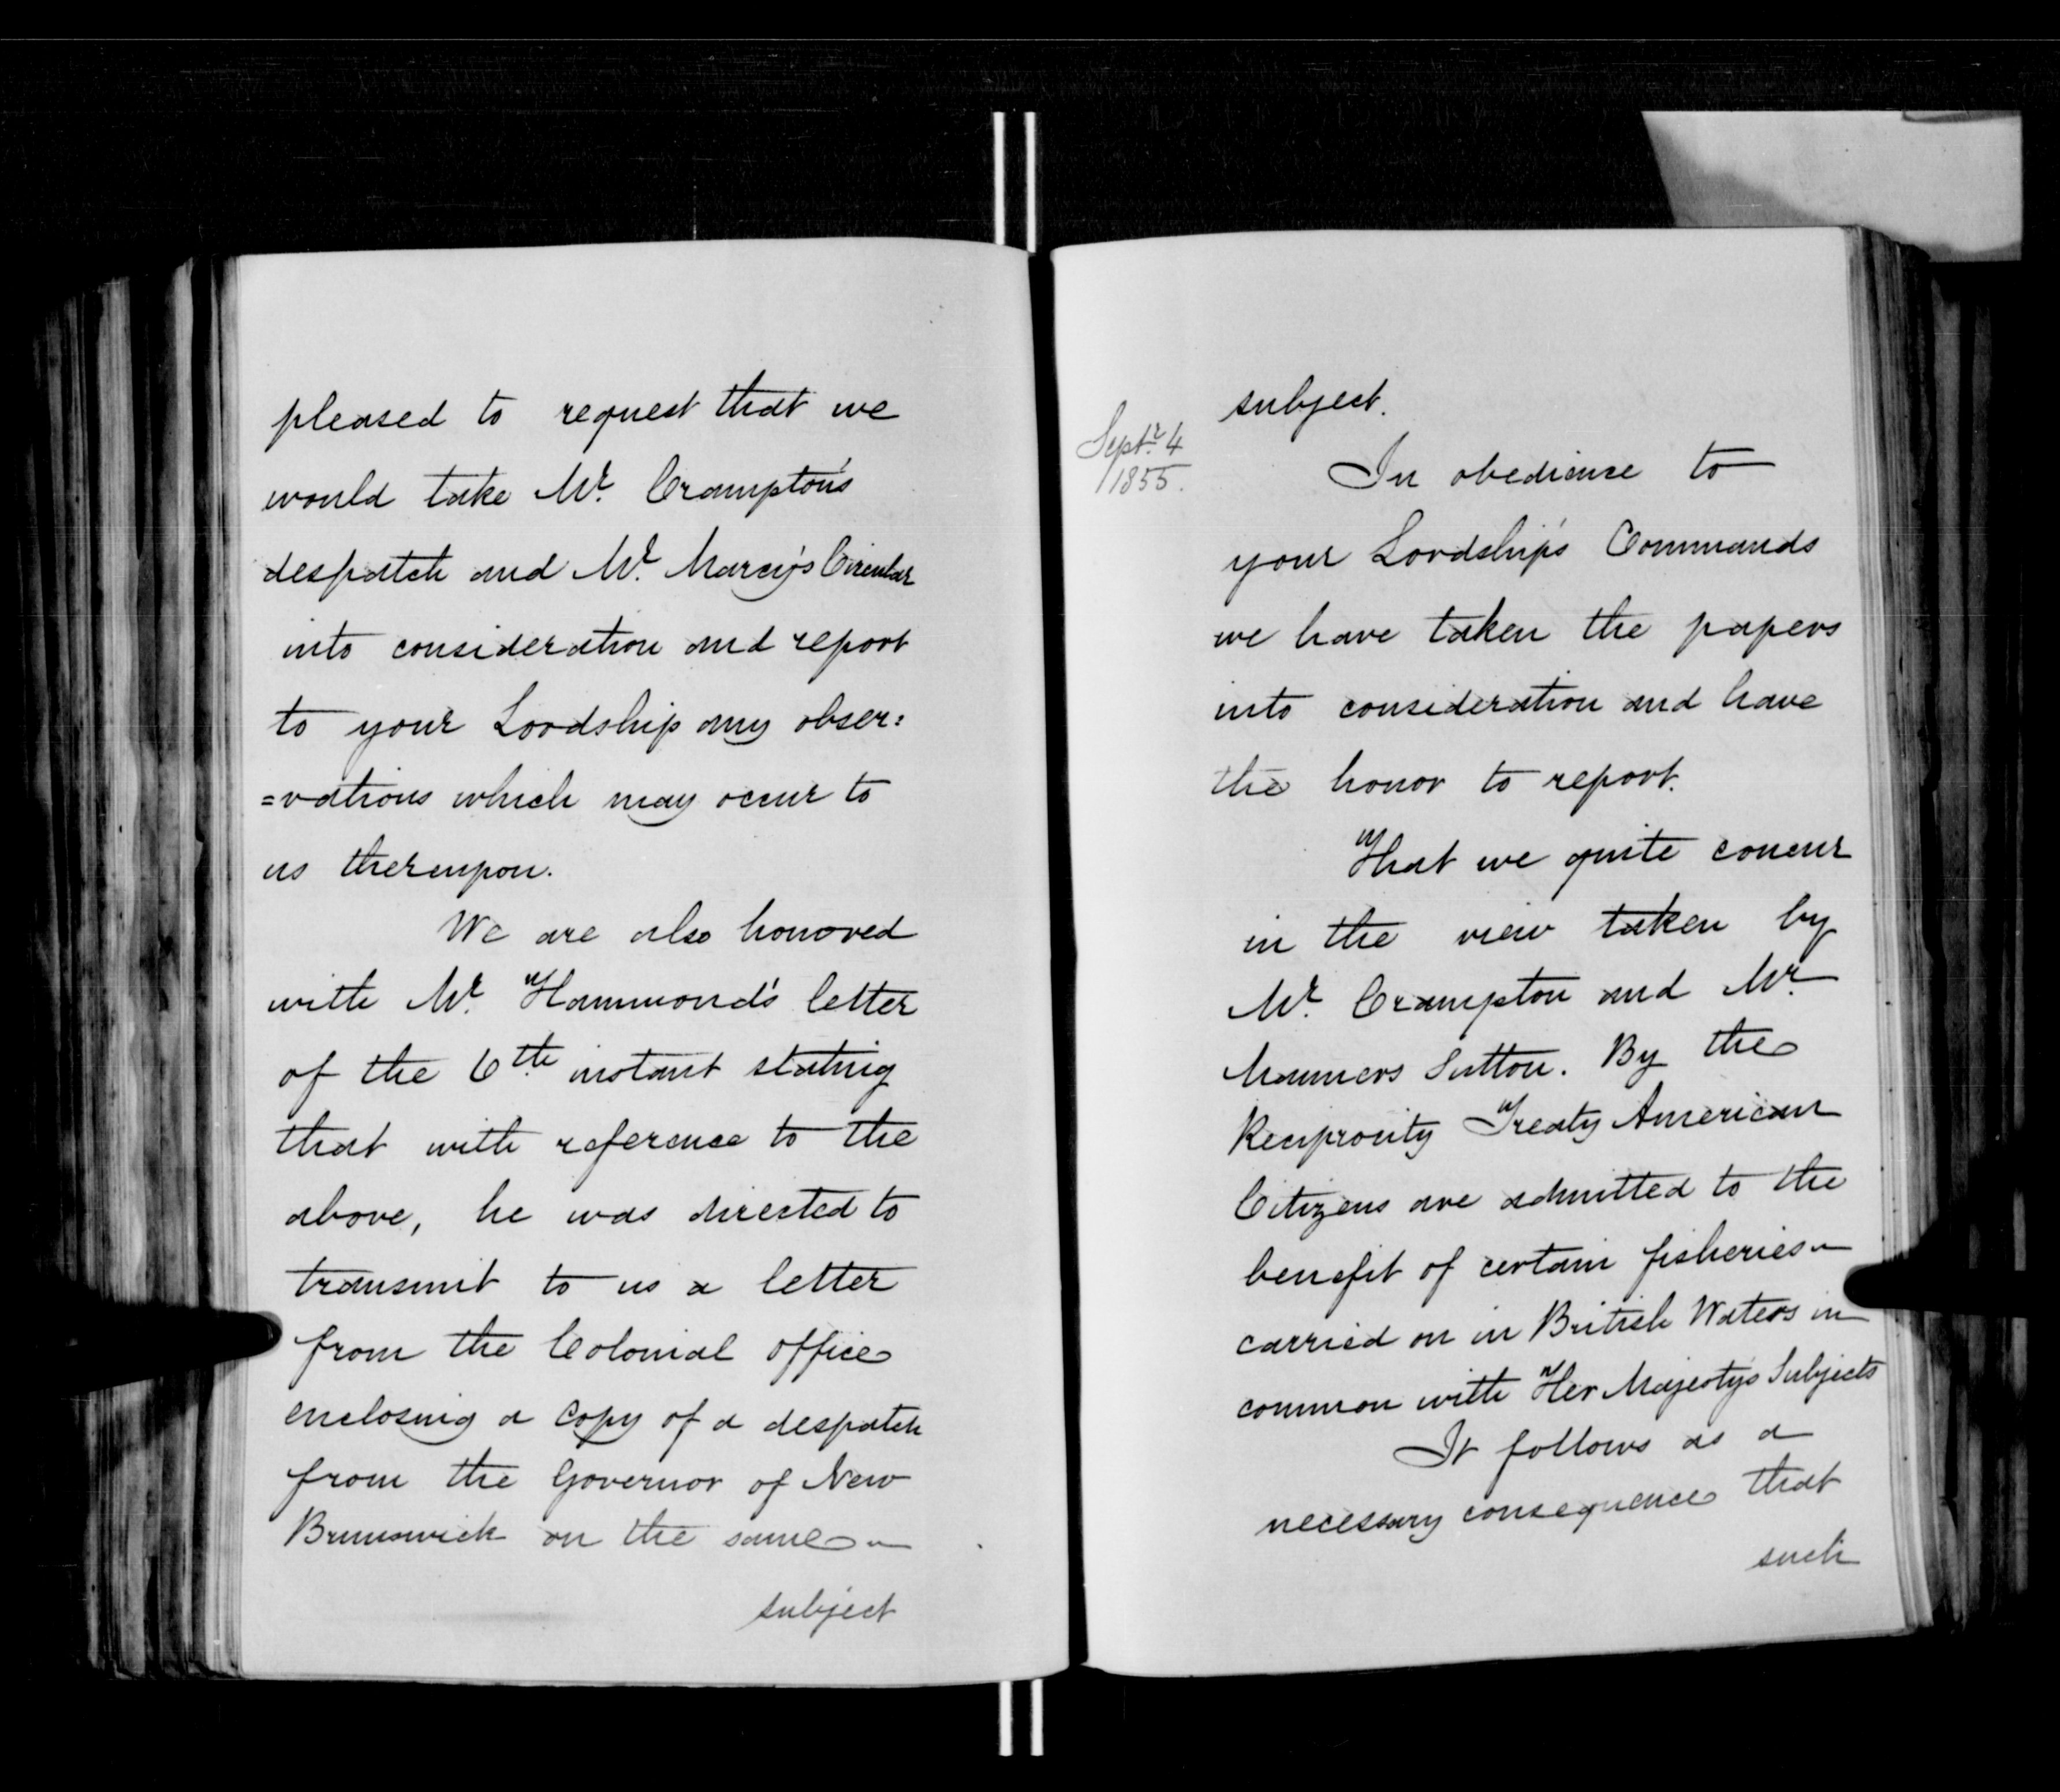 pleased to request that we
would take Mr. Crampton's
despatch and Mr. Marcy's Circular
into consideration and report
to your Lordship any obser:
=vations which may occur to
us thereupon.
We are also honored
with Mr. Hammond's letter
of the 6th instant stating
that with reference to the
above, he was directed to
transmit to us a letter
from the Colonial office
enclosing a copy of a despatch
from the Governor of New
Brunswick on the same
subject
Septr. 4
1855.
subject.
In obedience to
your Lordship's Commands
we have taken the papers
into consideration and have
the honor to report.
That we quite concur
in the view taken by
Mr. Crampton and Mr.
Manners Sutton. By the
Reciprocity Treaty American
Citizens are admitted to the
benefit of certain fisheries
carried on in British Waters in
common with Her Majesty's Subjects
It follows as a
necessary consequence that
such